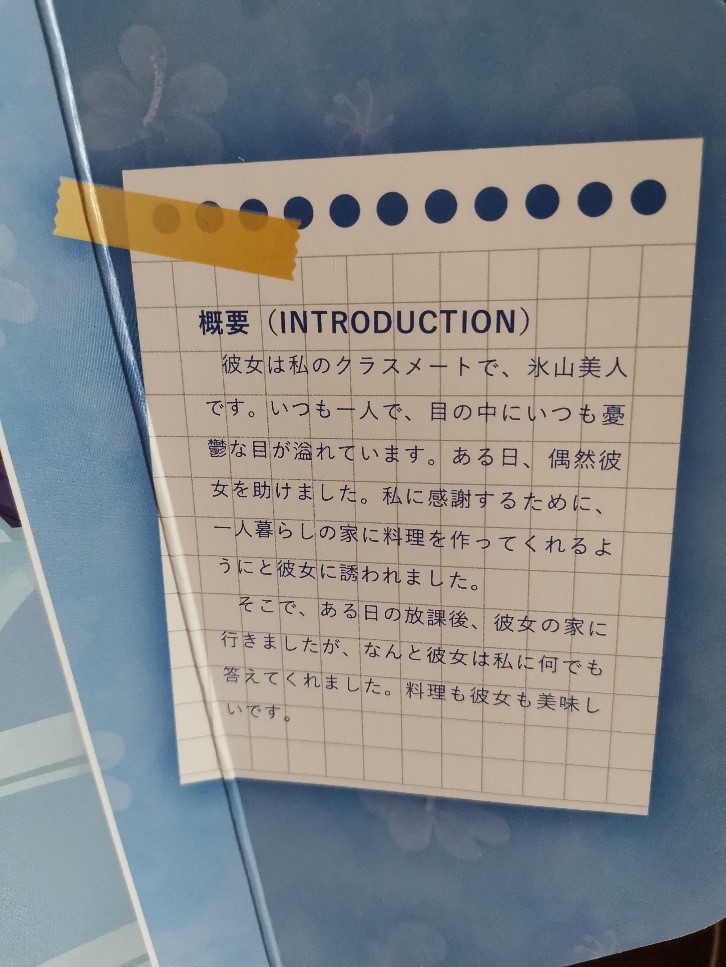 概要（INTRODUCTION）
彼女は私のクラスメートで、氷山美人
です。いつも一人で、目の中にいつも憂
鬱な目が溢れています。ある日、偶然彼
女を助けました。私に感謝するために、
一人暮らしの家に料理を作ってくれるよ
うにと彼女に誘われました。
そこで、ある日の放課後、彼女の家に
行きましたが、なんと彼女は私に何でも
答えてくれました。料理も彼女も美味し
いです。